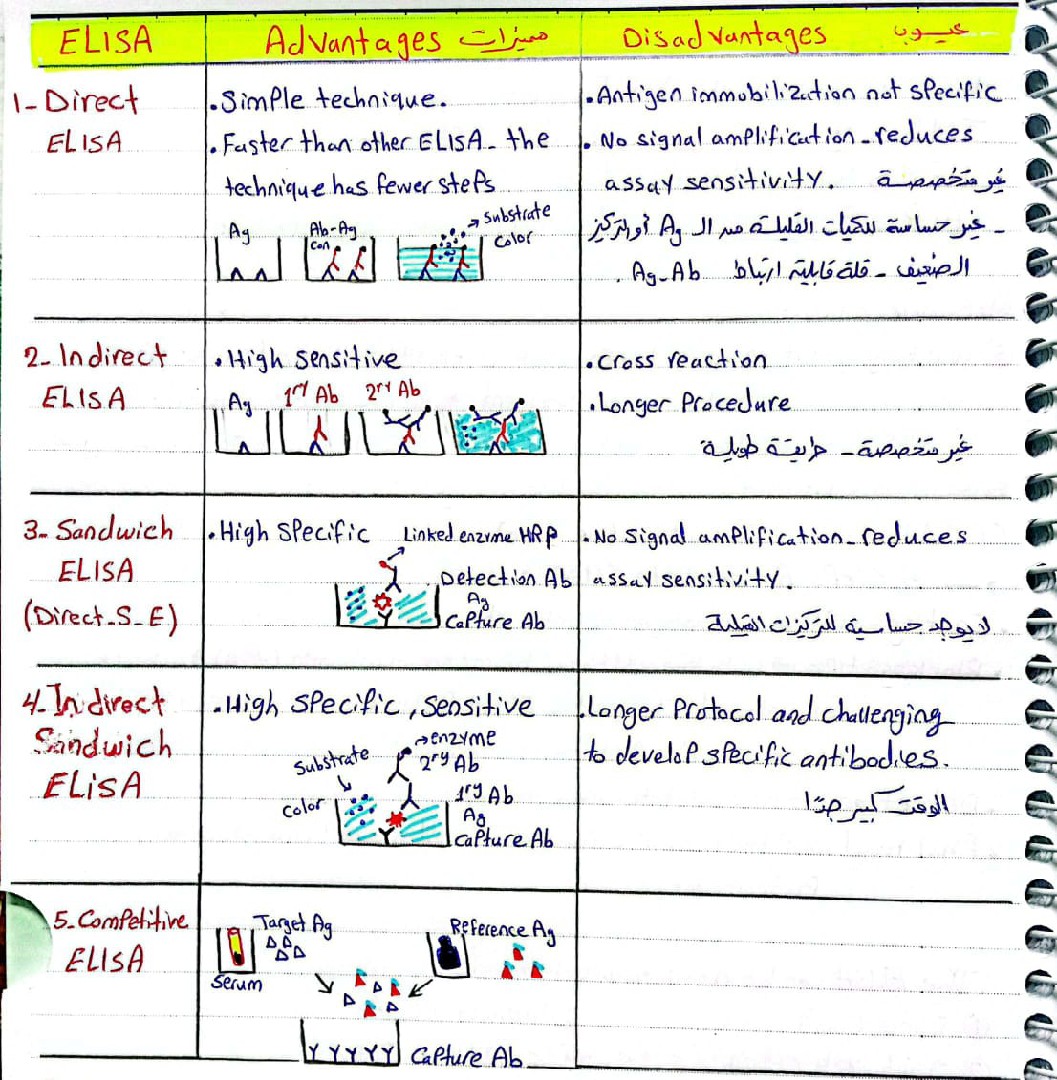 ELISA
Advantages مميزات
Disadvantages عيوب
1- Direct
ELISA
. Simple technique.
. Faster than other ELISA - the
technique has fewer steps
Ag
Ab-Ag
Con
substrate
Color
. Antigen immobilization not specific
. No signal amplification - reduces
assay sensitivity. غير متخصصة
- غير حساسة للكميات القليلة من ال Ag أو التركيز
الضعيف - قلة قابلية ارتباط Ag-Ab .
2- Indirect
ELISA
. High Sensitive
Ag
1ry Ab
2ry Ab
. Cross reaction
. Longer Procedure
غير متخصصة - طريقة طويلة
3- Sandwich
ELISA
(Direct-S-E)
. High Specific
Linked enzyme HRP
Detection Ab
Ag
Capture Ab
. No Signal amplification - reduces
assay sensitivity.
لا يوجد حساسية للتركيزات القليلة
4- Indirect
Sandwich
ELISA
. High Specific, Sensitive
enzyme
2ry Ab
Substrate
Color
1ry Ab
Ag
Capture Ab
. Longer Protocol and challenging
to develop specific antibodies.
الوقت كبير جدًا
5- Competitive
ELISA
Target Ag
Serum
Reference Ag
Y Y Y Y Y
Capture Ab